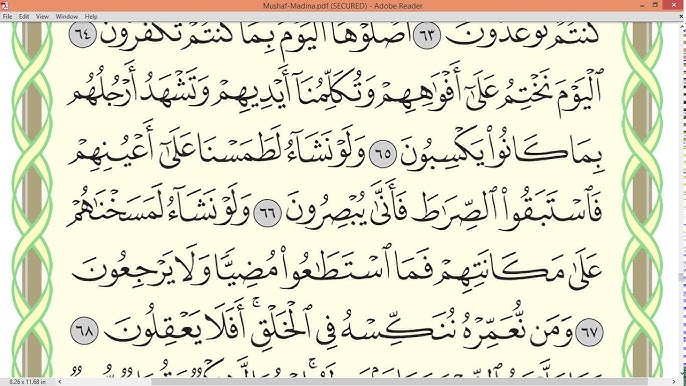 Mushaf-Madina.pdf (SECURED) - Adobe Reader
File Edit View Window Help
كُنتُمْ تُوعَدُونَ ٦٣ ٱصْلَوْهَا ٱلْيَوْمَ بِمَا كُنتُمْ تَكْفُرُونَ ٦٤
ٱلْيَوْمَ نَخْتِمُ عَلَىٰٓ أَفْوَٰهِهِمْ وَتُكَلِّمُنَآ أَيْدِيهِمْ وَتَشْهَدُ أَرْجُلُهُم
بِمَا كَانُوا۟ يَكْسِبُونَ ٦٥ وَلَوْ نَشَآءُ لَطَمَسْنَا عَلَىٰٓ أَعْيُنِهِمْ
فَٱسْتَبَقُوا۟ ٱلصِّرَٰطَ فَأَنَّىٰ يُبْصِرُونَ ٦٦ وَلَوْ نَشَآءُ لَمَسَخْنَٰهُمْ
عَلَىٰ مَكَانَتِهِمْ فَمَا ٱسْتَطَٰعُوا۟ مُضِيًّا وَلَا يَرْجِعُونَ
٦٧ وَمَن نُّعَمِّرْهُ نُنَكِّسْهُ فِى ٱلْخَلْقِ ۖ أَفَلَا يَعْقِلُونَ ٦٨
8.26 x 11.68 in